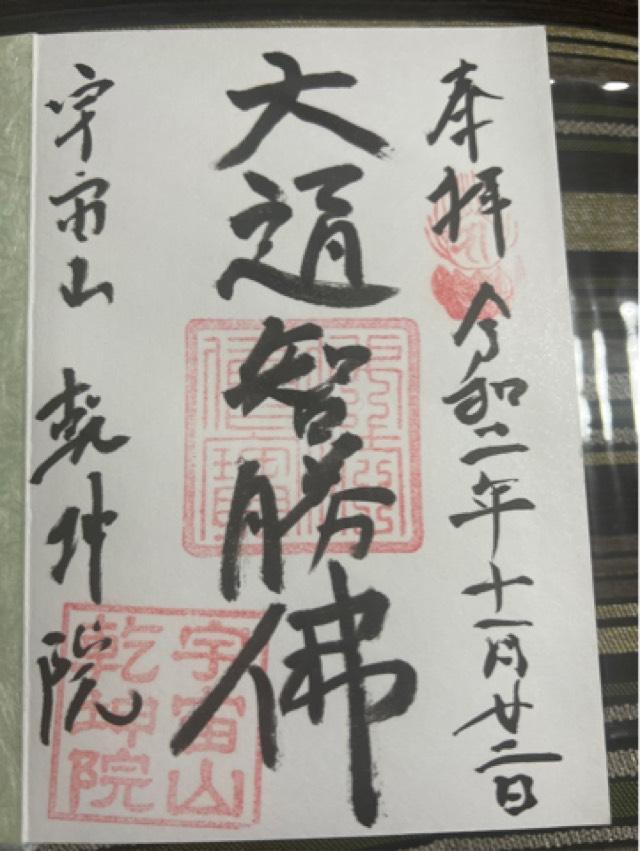 奉拝 令和二年十一月廿二日
大通智勝佛
宇宙山 乾坤院
宇宙山
乾坤院